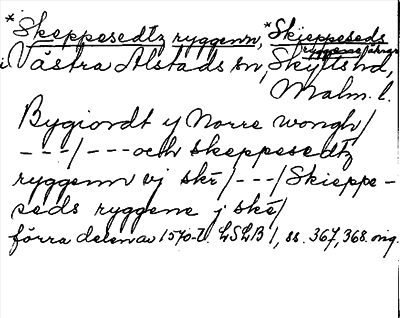 *Skeppesedtz ryggenn, *Skieppeseds
ryggene
i Västra Alstads sn, Skytts hd,
Malm. l.
Bygiordt y Norre wongh/
---/---och skeppesedtz
ryggenn vj ske/---/Skieppe-
seds ryggene j ske/
förra delen av 1570-t. LSLB 1, ss. 367, 368. orig.